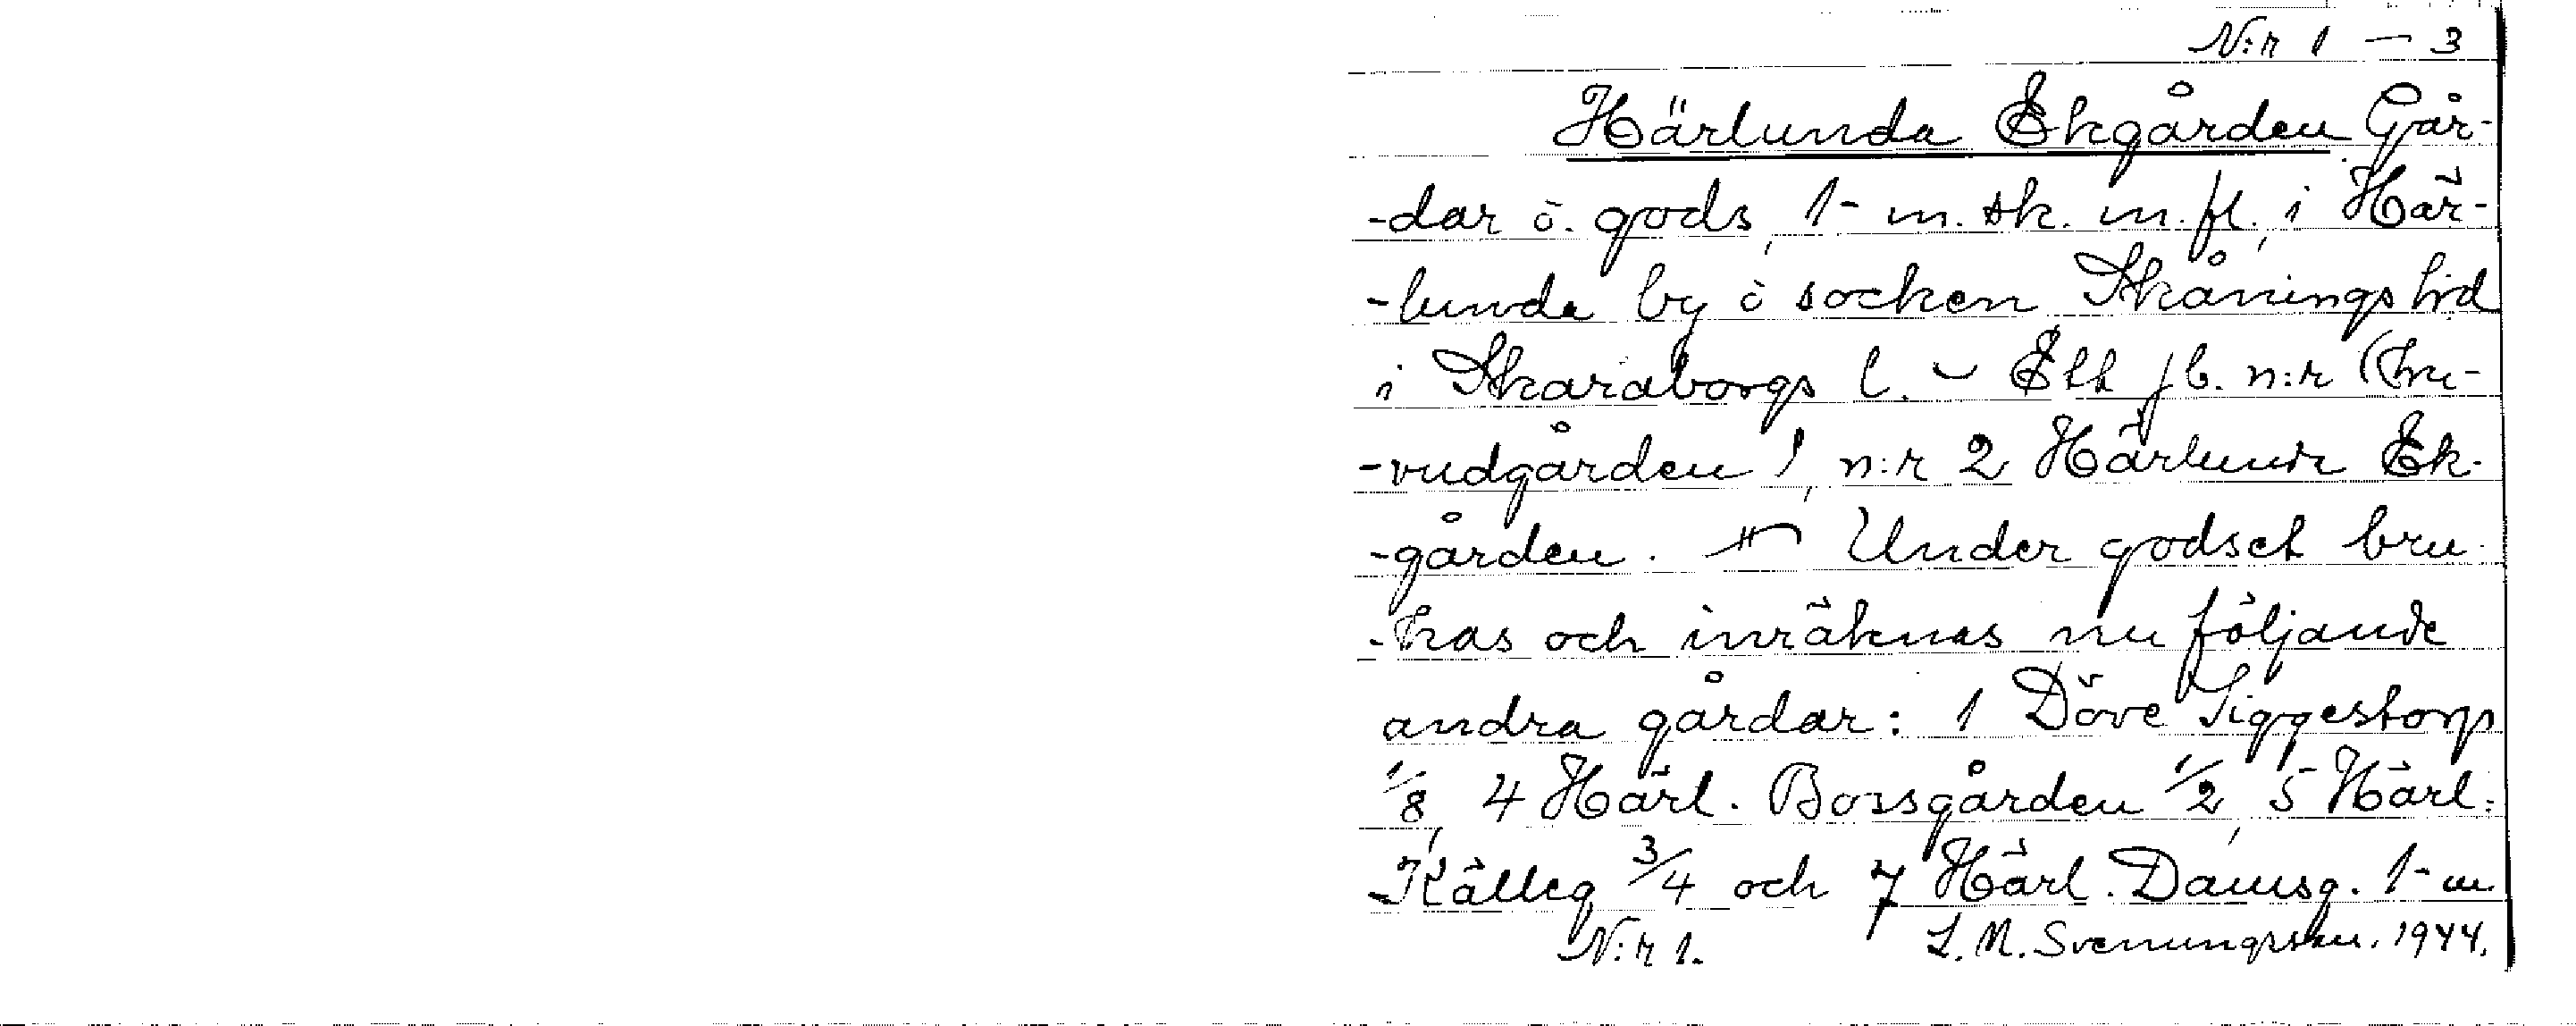 N:r 1 — 3
Härlunda Ekgården Går-
-dar o. gods, 1- m. sk. m. fl., i Här-
-lunda by o socken Skånings hd
i Skaraborgs l. – Ett jb. n:r (hu-
-vudgården), n:r 2 Härlunda Ek-
-gården. Under godset bru-
-kas och inräknas nu följande
andra gårdar: 1 Döve Siggestorp
1/8, 4 Härl. Bossgården 1/2, 5 Härl.
-Källeg 3/4 och 7 Härl. Damsg. 1- m
N:r 1. L. M. Svenungsson. 1944.